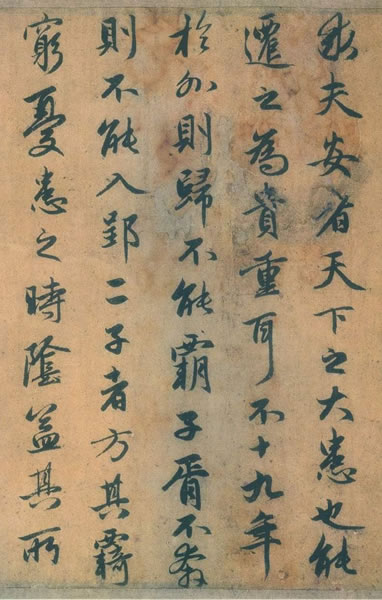 夫安者天下之大患也能
遷之為貴重耳不十九年
於外則歸不能霸子胥不奔
則不能入郢二子者方其羇
窮憂患之時陰益其所